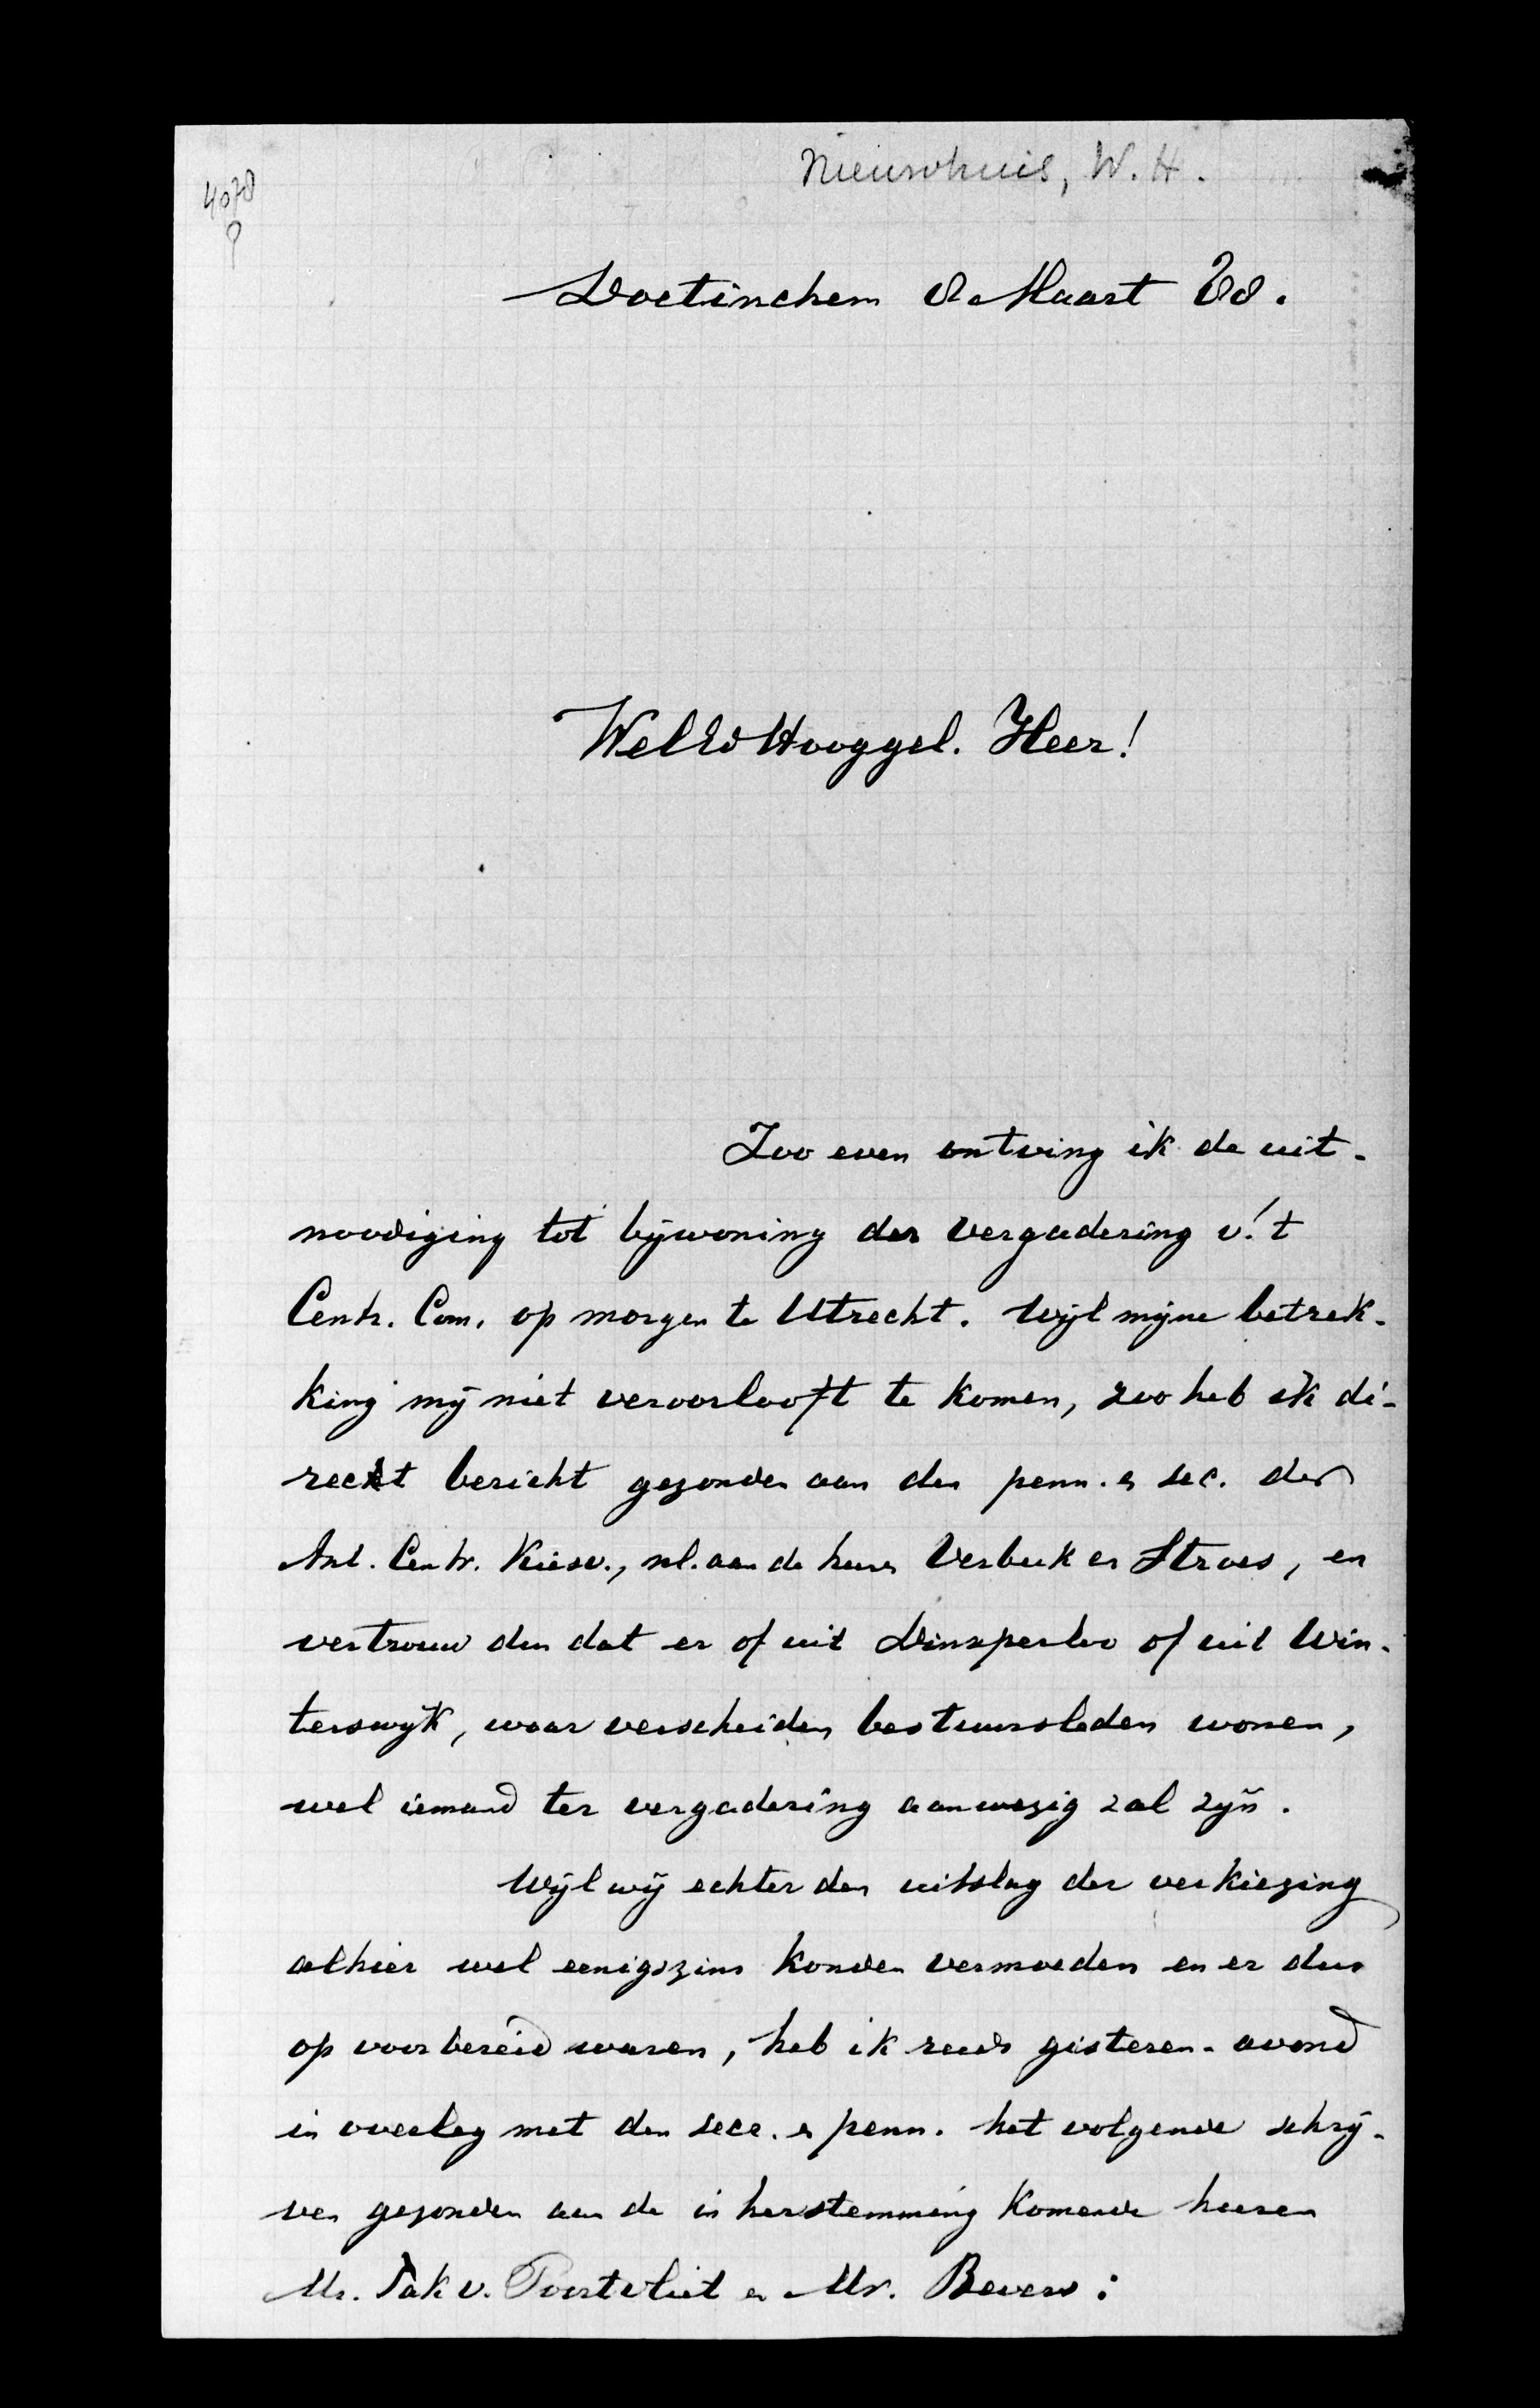 Nieuwhuis, W. H.
4078
Doetinchem 8 Maart 88.
WelEd Hooggel. Heer!
Zoo even ontving ik de uit-
noodiging tot bijwoning der vergadering v. 't
Centr. Com. op morgen te Utrecht. Wijl mijne betrek-
king mij niet veroorlooft te komen, zoo heb ik di-
rect bericht gezonden aan den penn. en sec. der
Ant. Centr. Kiesv., nl. aan de heeren Verbeek en Stroes, en
vertrouw dan dat er of uit Dinxperloo of uit Win-
terswijk, waar verscheiden bestuursleden wonen,
wel iemand ter vergadering aanwezig zal zijn.
Wijl wij echter den uitslag der verkiezing
alhier wel eenigszins konden vermoeden en er dus
op voorbereid waren, heb ik reeds gisteren-avond
in overleg met den secr. en penn. het volgende schrij-
ven gezonden aan de in herstemming komende heeren
Mr. Tak v. Poortvliet en Mr. Bevers: